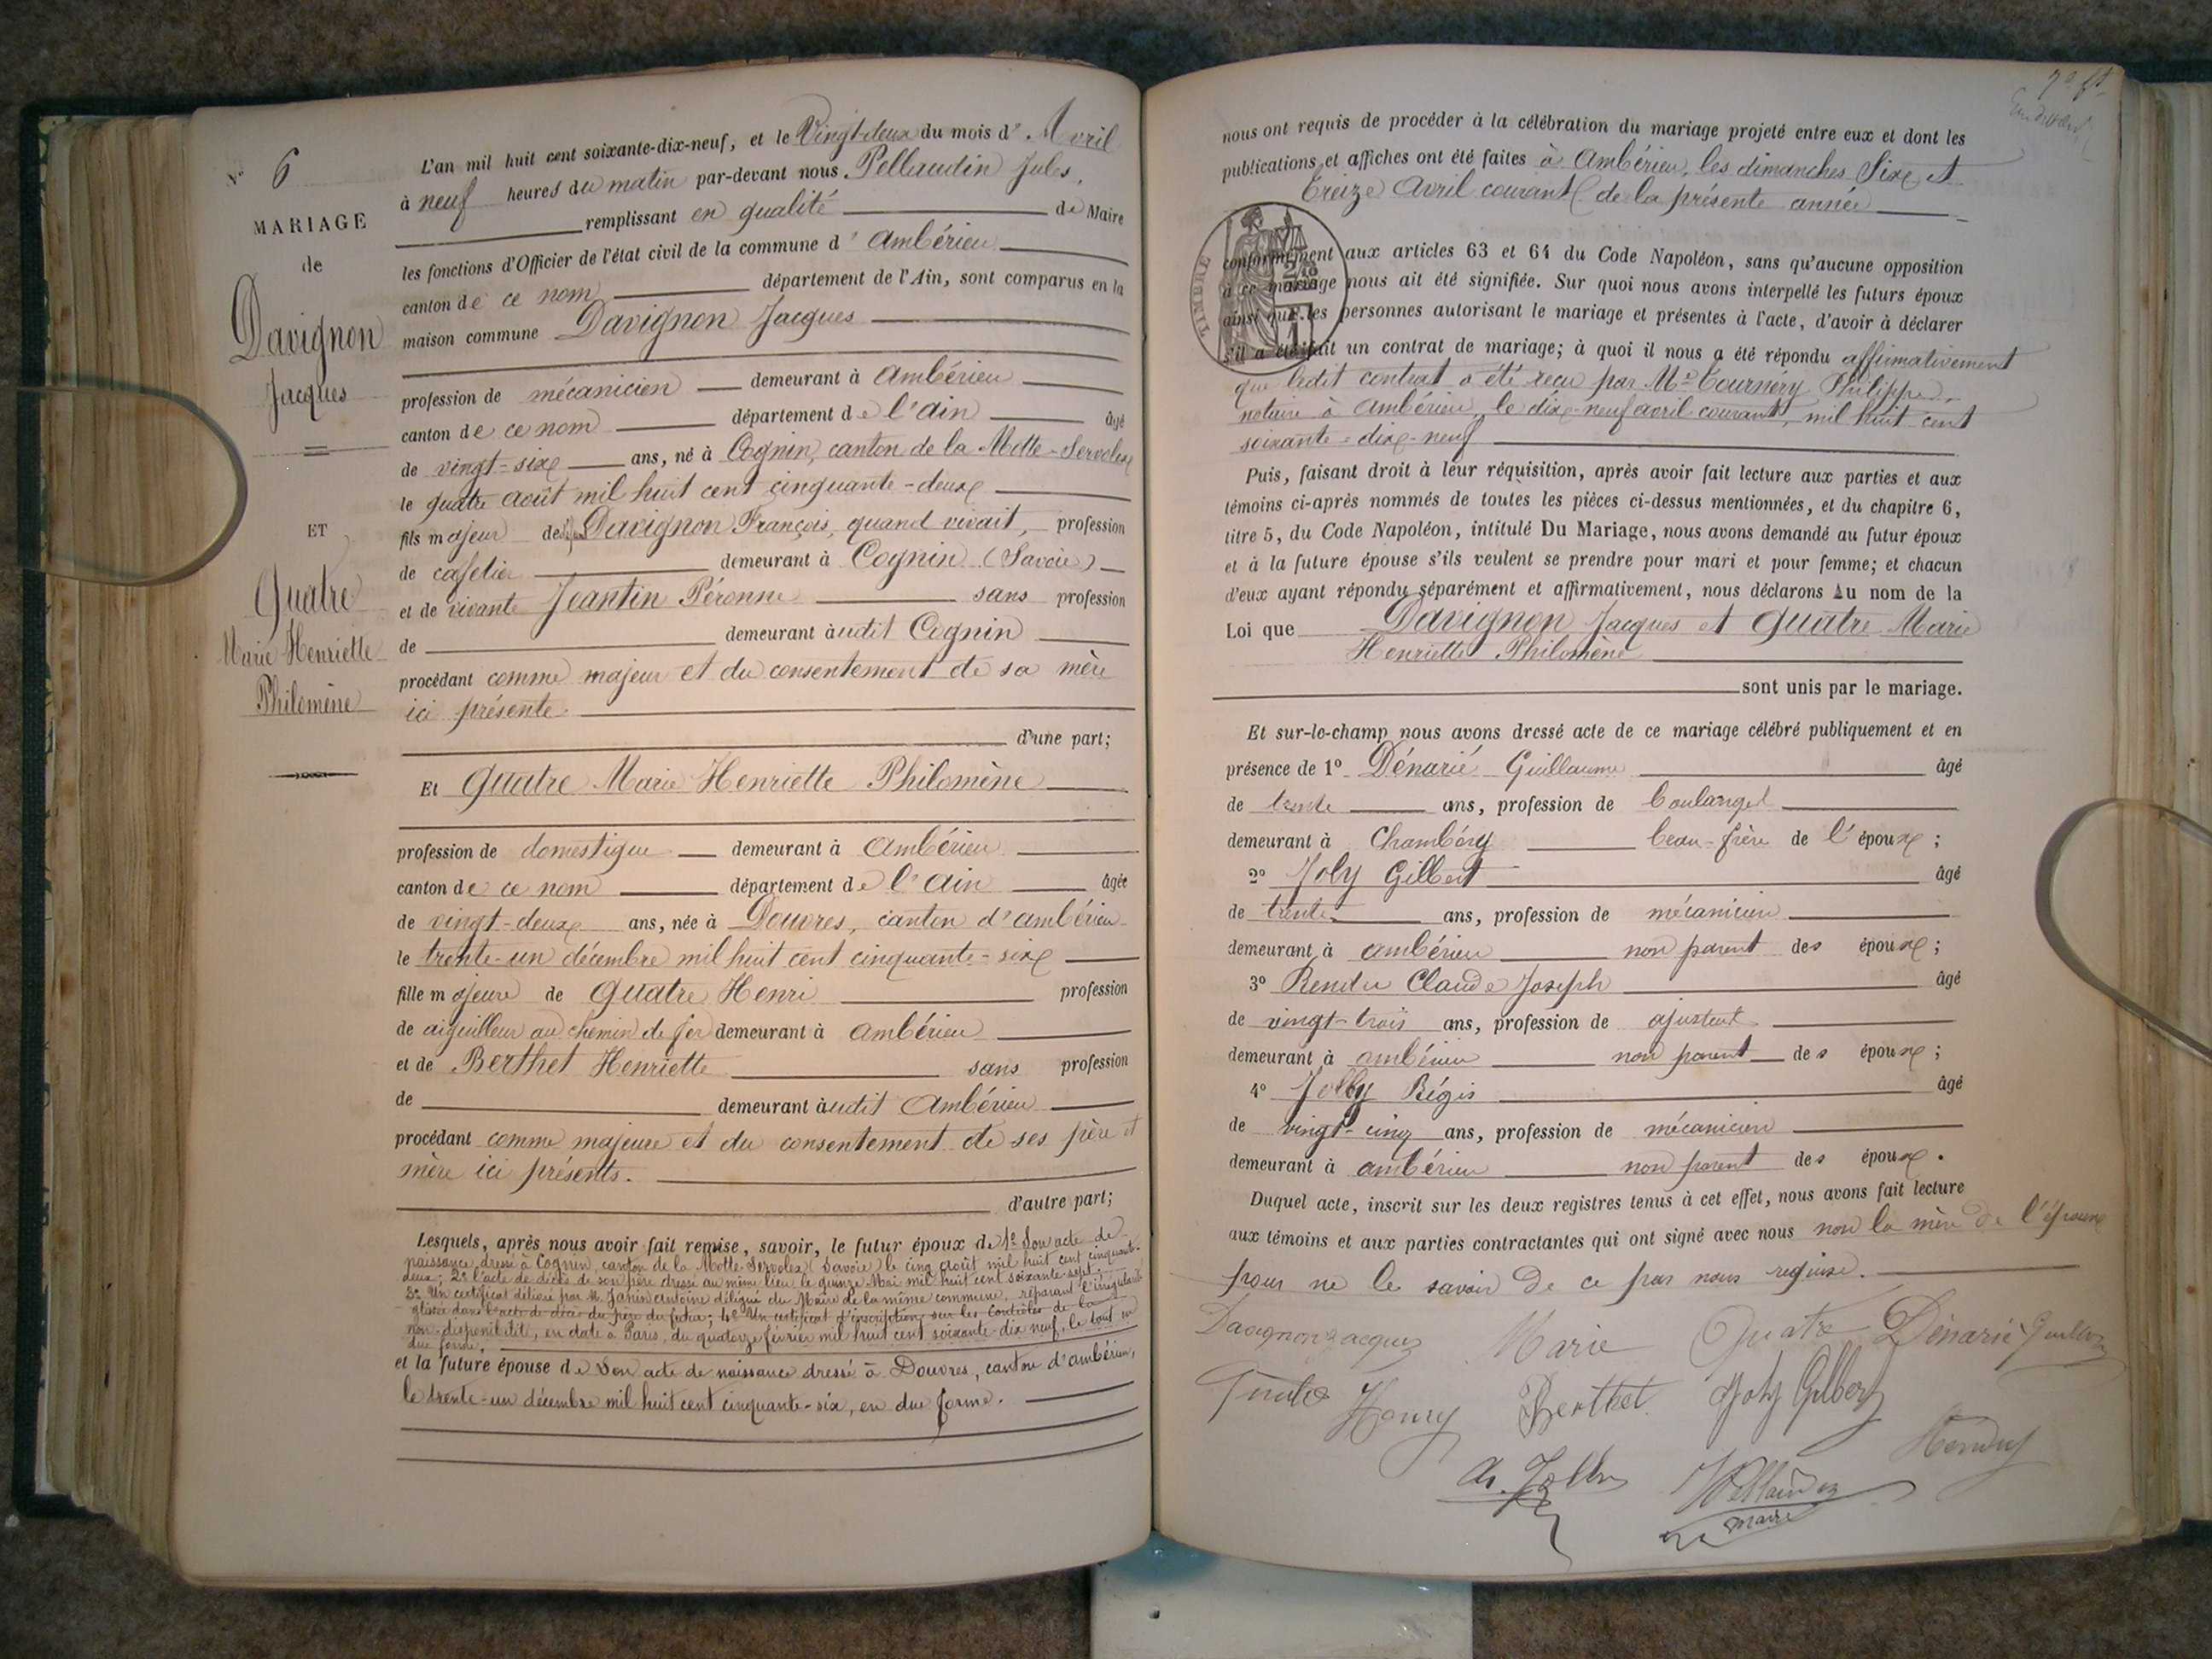 N° 6
MARIAGE
de
Davignon
Jacques
ET
Quatre
Marie Henriette
Philomène
L'an mil huit cent soixante-dix-neuf, et le Vingt-deux du mois d' Avril
à neuf heures du matin par-devant nous Pellaudin Jules,
remplissant en qualité de Maire
les fonctions d'Officier de l'état civil de la commune d' Ambérieu
canton de ce nom département de l'Ain, sont comparus en la
maison commune Davignon Jacques
profession de mécanicien demeurant à Ambérieu
canton de ce nom département de l'Ain âgé
de vingt-six ans, né à Cognin, canton de la Motte-Servolex
le quatre août mil huit cent cinquante-deux
fils majeur de Davignon François, quand vivait, profession
de cafetier demeurant à Cognin (Savoie)
et de vivante Jeantin Péronne sans profession
de demeurant audit Cognin
procédant comme majeur et du consentement de sa mère
ici présente.
d'une part;
Et Quatre Marie Henriette Philomène
profession de domestique demeurant à Ambérieu
canton de ce nom département de l'Ain âgée
de vingt-deux ans, née à Douvres, canton d'Ambérieu
le trente-un décembre mil huit cent cinquante-six
fille majeure de Quatre Henri profession
de aiguilleur au chemin de fer demeurant à Ambérieu
et de Berthet Henriette sans profession
de demeurant audit Ambérieu
procédant comme majeure et du consentement de ses père et
mère ici présents.
d'autre part;
Lesquels, après nous avoir fait remise, savoir, le futur époux de 1° Son acte de
naissance dressé à Cognin, canton de la Motte-Servolex (Savoie) le cinq août mil huit cent cinquante-
deux; 2° l'acte de décès de son père dressé au même lieu le quinze Mai mil huit cent soixante-sept;
3° Un certificat délivré par M. Janin Antoine délégué du Maire de la même commune, réparant l'irrégularité
glissée dans l'acte de décès du père du futur; 4° Un certificat d'inscription sur les contrôles de la
non-disponibilité, en date à Paris, du quatorze février mil huit cent soixante-dix neuf, le tout en
due forme.
et la future épouse de Son acte de naissance dressé à Douvres, canton d'Ambérieu,
le trente-un décembre mil huit cent cinquante-six, en due forme.
nous ont requis de procéder à la célébration du mariage projeté entre eux et dont les
publications et affiches ont été faites à Ambérieu, les dimanches Six et
Treize Avril courant de la présente année
TIMBRE
conformément aux articles 63 et 64 du Code Napoléon, sans qu'aucune opposition
à ce mariage nous ait été signifiée. Sur quoi nous avons interpellé les futurs époux
ainsi que les personnes autorisant le mariage et présentes à l'acte, d'avoir à déclarer
s'il a été fait un contrat de mariage; à quoi il nous a été répondu affirmativement
que ledit contrat a été reçu par Me Tournéry Philippe,
notaire à Ambérieu, le dix-neuf avril courant, mil huit cent
soixante-dix-neuf
Puis, faisant droit à leur réquisition, après avoir fait lecture aux parties et aux
témoins ci-après nommés de toutes les pièces ci-dessus mentionnées, et du chapitre 6,
titre 5, du Code Napoléon, intitulé Du Mariage, nous avons demandé au futur époux
et à la future épouse s'ils veulent se prendre pour mari et pour femme; et chacun
d'eux ayant répondu séparément et affirmativement, nous déclarons Au nom de la
Loi que Davignon Jacques et Quatre Marie
Henriette Philomène
sont unis par le mariage.
Et sur-le-champ nous avons dressé acte de ce mariage célébré publiquement et en
présence de 1° Dénarié Guillaume âgé
de trente ans, profession de boulanger
demeurant à Chambéry beau-frère de l'époux;
2° Joly Gilbert âgé
de trente ans, profession de mécanicien
demeurant à Ambérieu non parent des époux;
3° Rendu Claude Joseph âgé
de vingt-trois ans, profession de ajusteur
demeurant à Ambérieu non parent des époux;
4° Jolly Régis âgé
de vingt-cinq ans, profession de mécanicien
demeurant à Ambérieu non parent des époux.
Duquel acte, inscrit sur les deux registres tenus à cet effet, nous avons fait lecture
aux témoins et aux parties contractantes qui ont signé avec nous non la mère de l'époux
pour ne le savoir de ce par nous requise.
Davignon Jacques Marie Quatre Dénarié
Henry Berthet Joly Gilbert
Rendu
Maire